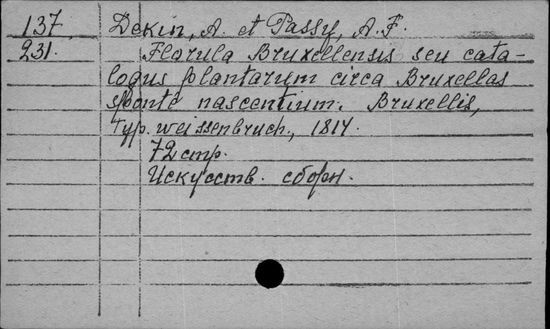 137 Dekin, A. et Passy, A. F.
231 Florula Bruxellensis seu cata-
logus plantarum circa Bruxellas
sponte nascentium. Bruxellis,
typ. weissenbruch., 1814.
72 стр.
Искусств. сборн.